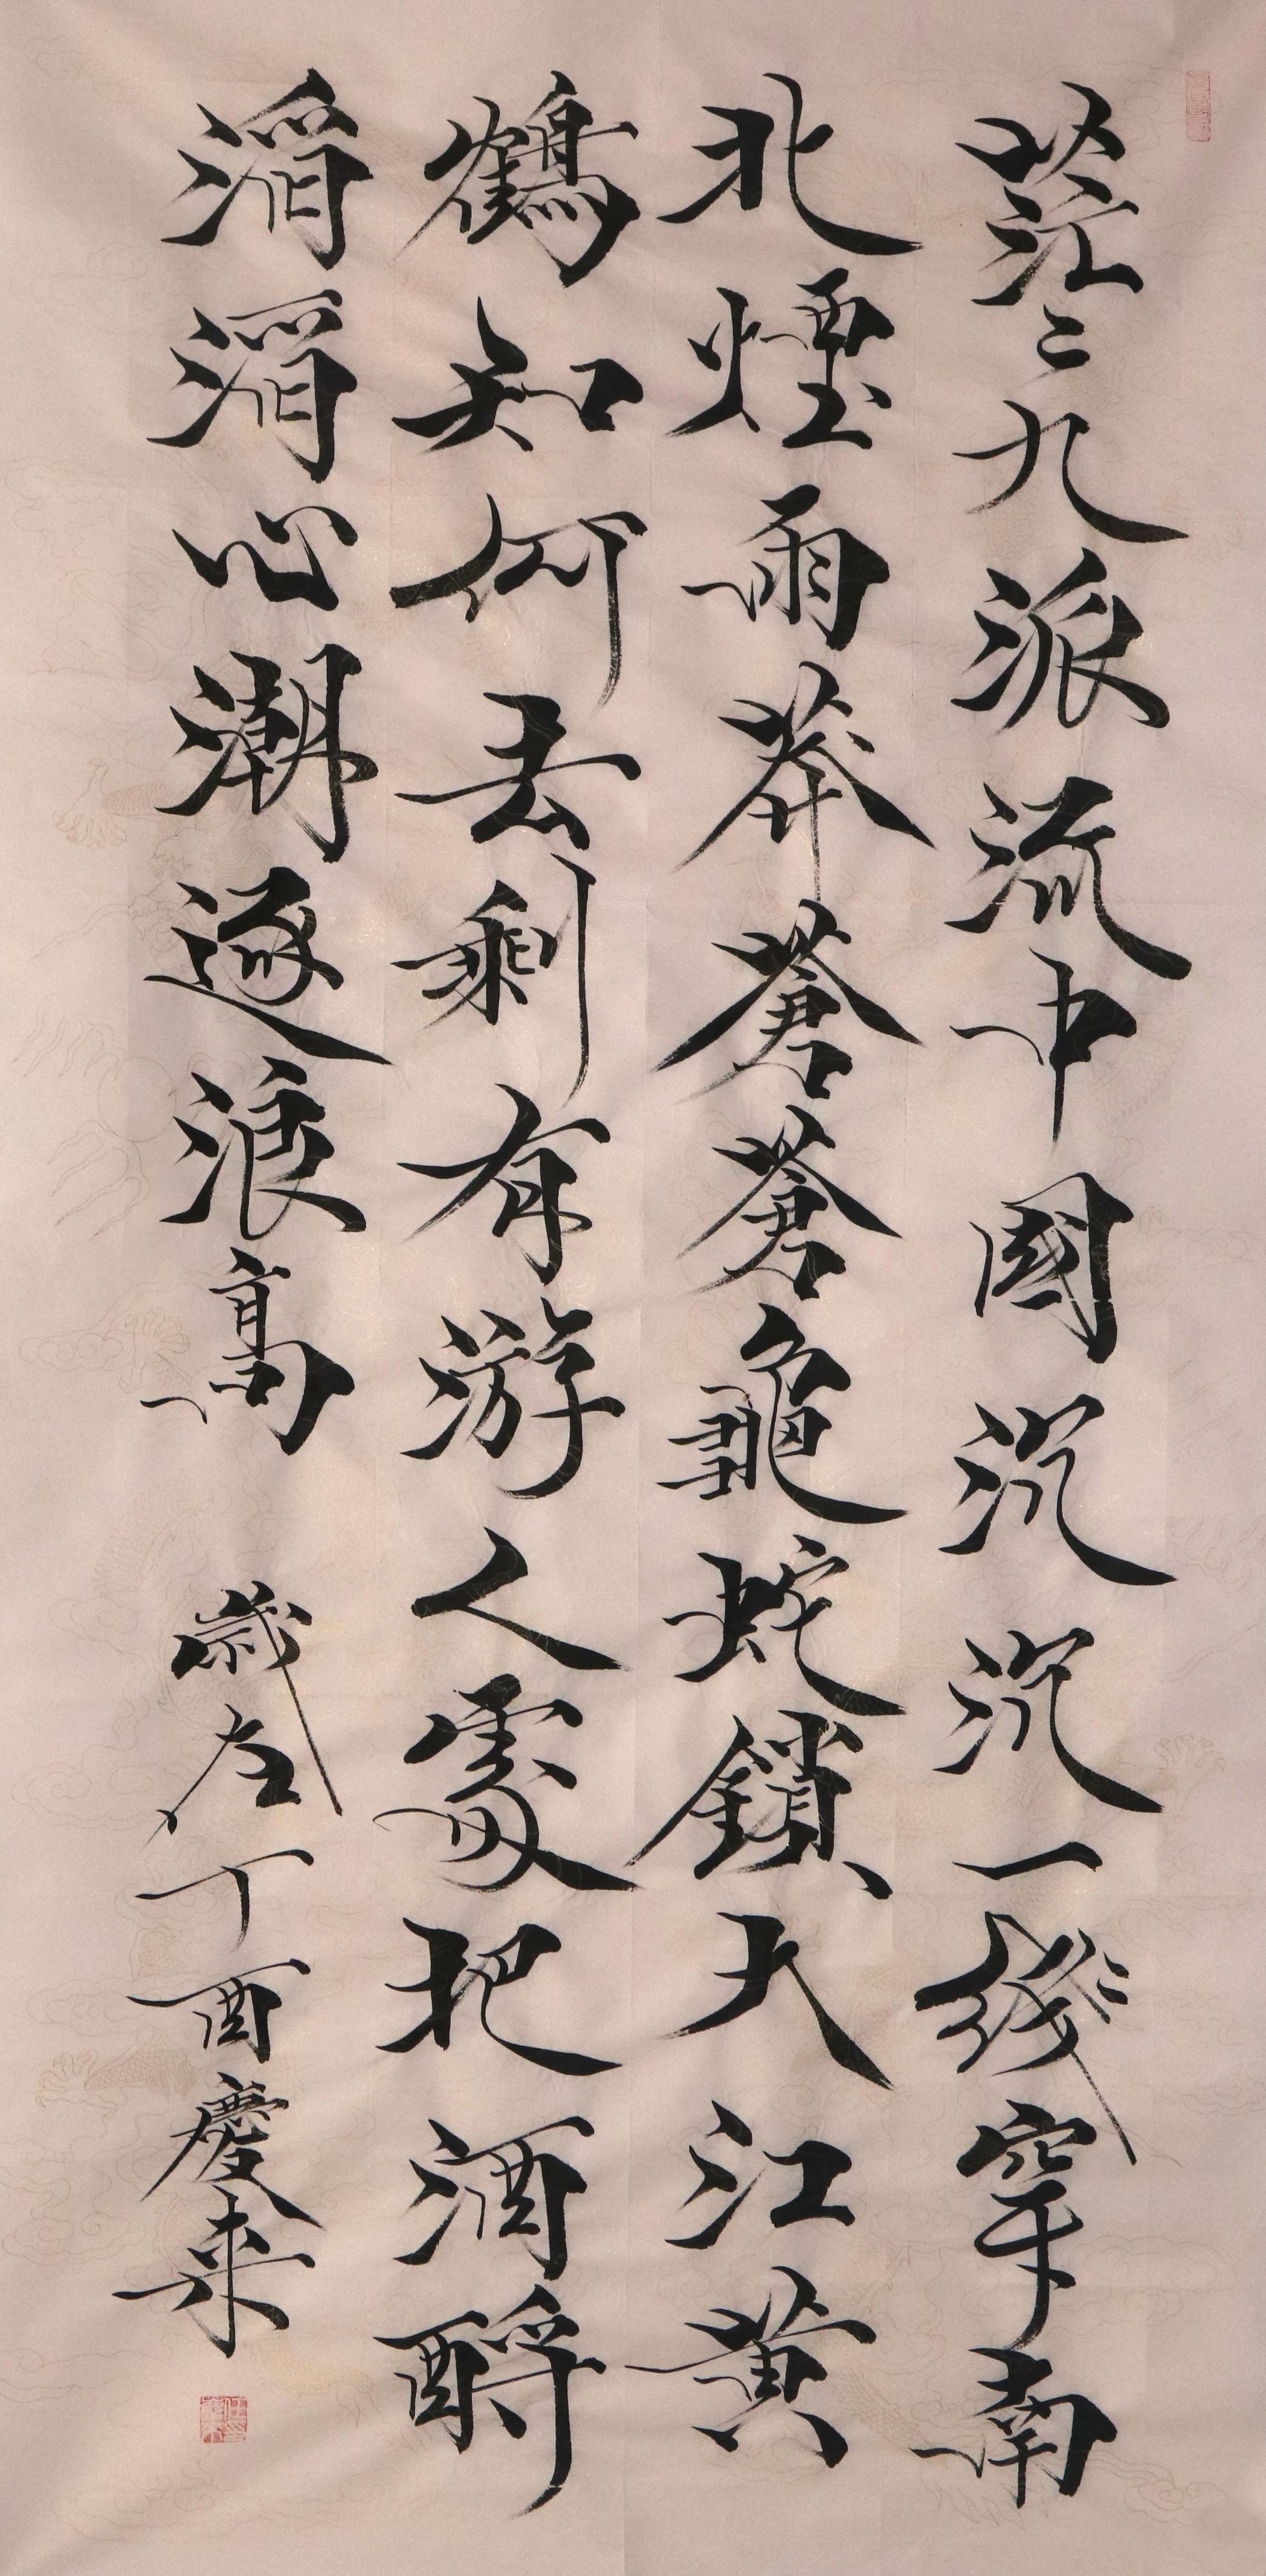 茫〻九派流中國沉沉一綫穿南
北煙雨莽蒼蒼龜蛇鎖大江黄
鶴知何去剩有游人處把酒酹
滔滔心潮逐浪高
歲在丁酉慶来